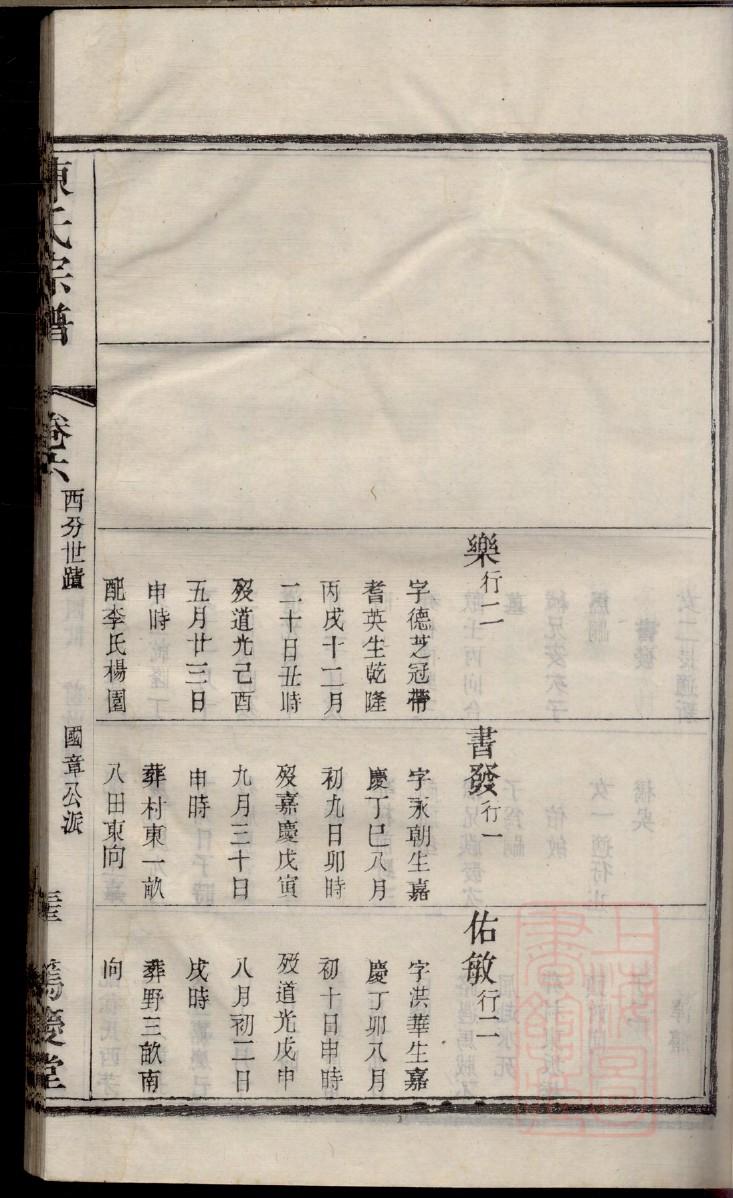 樂行二
字德芝冠帶
耆英生乾隆
丙戌十二月
二十日丑時
歿道光己酉
五月廿三日
申時
配李氏楊園
書發行一
字永朝生嘉
慶丁巳八月
初九日卯時
歿嘉慶戊寅
九月三十日
申時
葬村東一畝
八田東向
佑敏行二
字洪華生嘉
慶丁卯八月
初十日申時
歿道光戊申
八月初二日
戌時
葬野三畝南
向
陳氏宗譜
卷六
西分世蹟
國章公派
篤慶堂